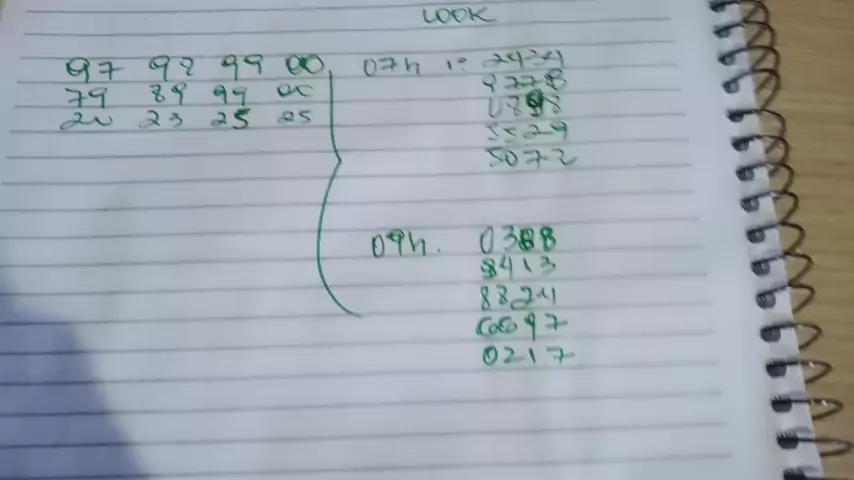 LOOK
97 92 99 00 07h 1: 2434
79 89 99 00 9778
20 23 25 25 0898
5529
5072
09h. 0388
8413
8824
6697
0217